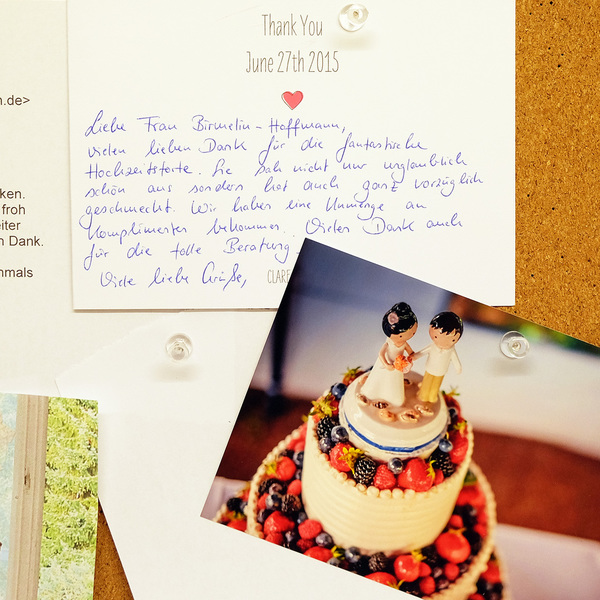 Thank You
June 27th 2015
Liebe Frau Birmelin-Hoffmann,
vielen lieben Dank für die fantastische
Hochzeitstorte. Sie sah nicht nur unglaublich
schön aus sondern hat auch ganz vorzüglich
geschmeckt. Wir haben eine Unmenge an
Komplimenten bekommen. Vielen Dank auch
für die tolle Beratung.
Viele liebe Grüße,
CLARE
n.de>
ken.
froh
eiter
n Dank.
nmals